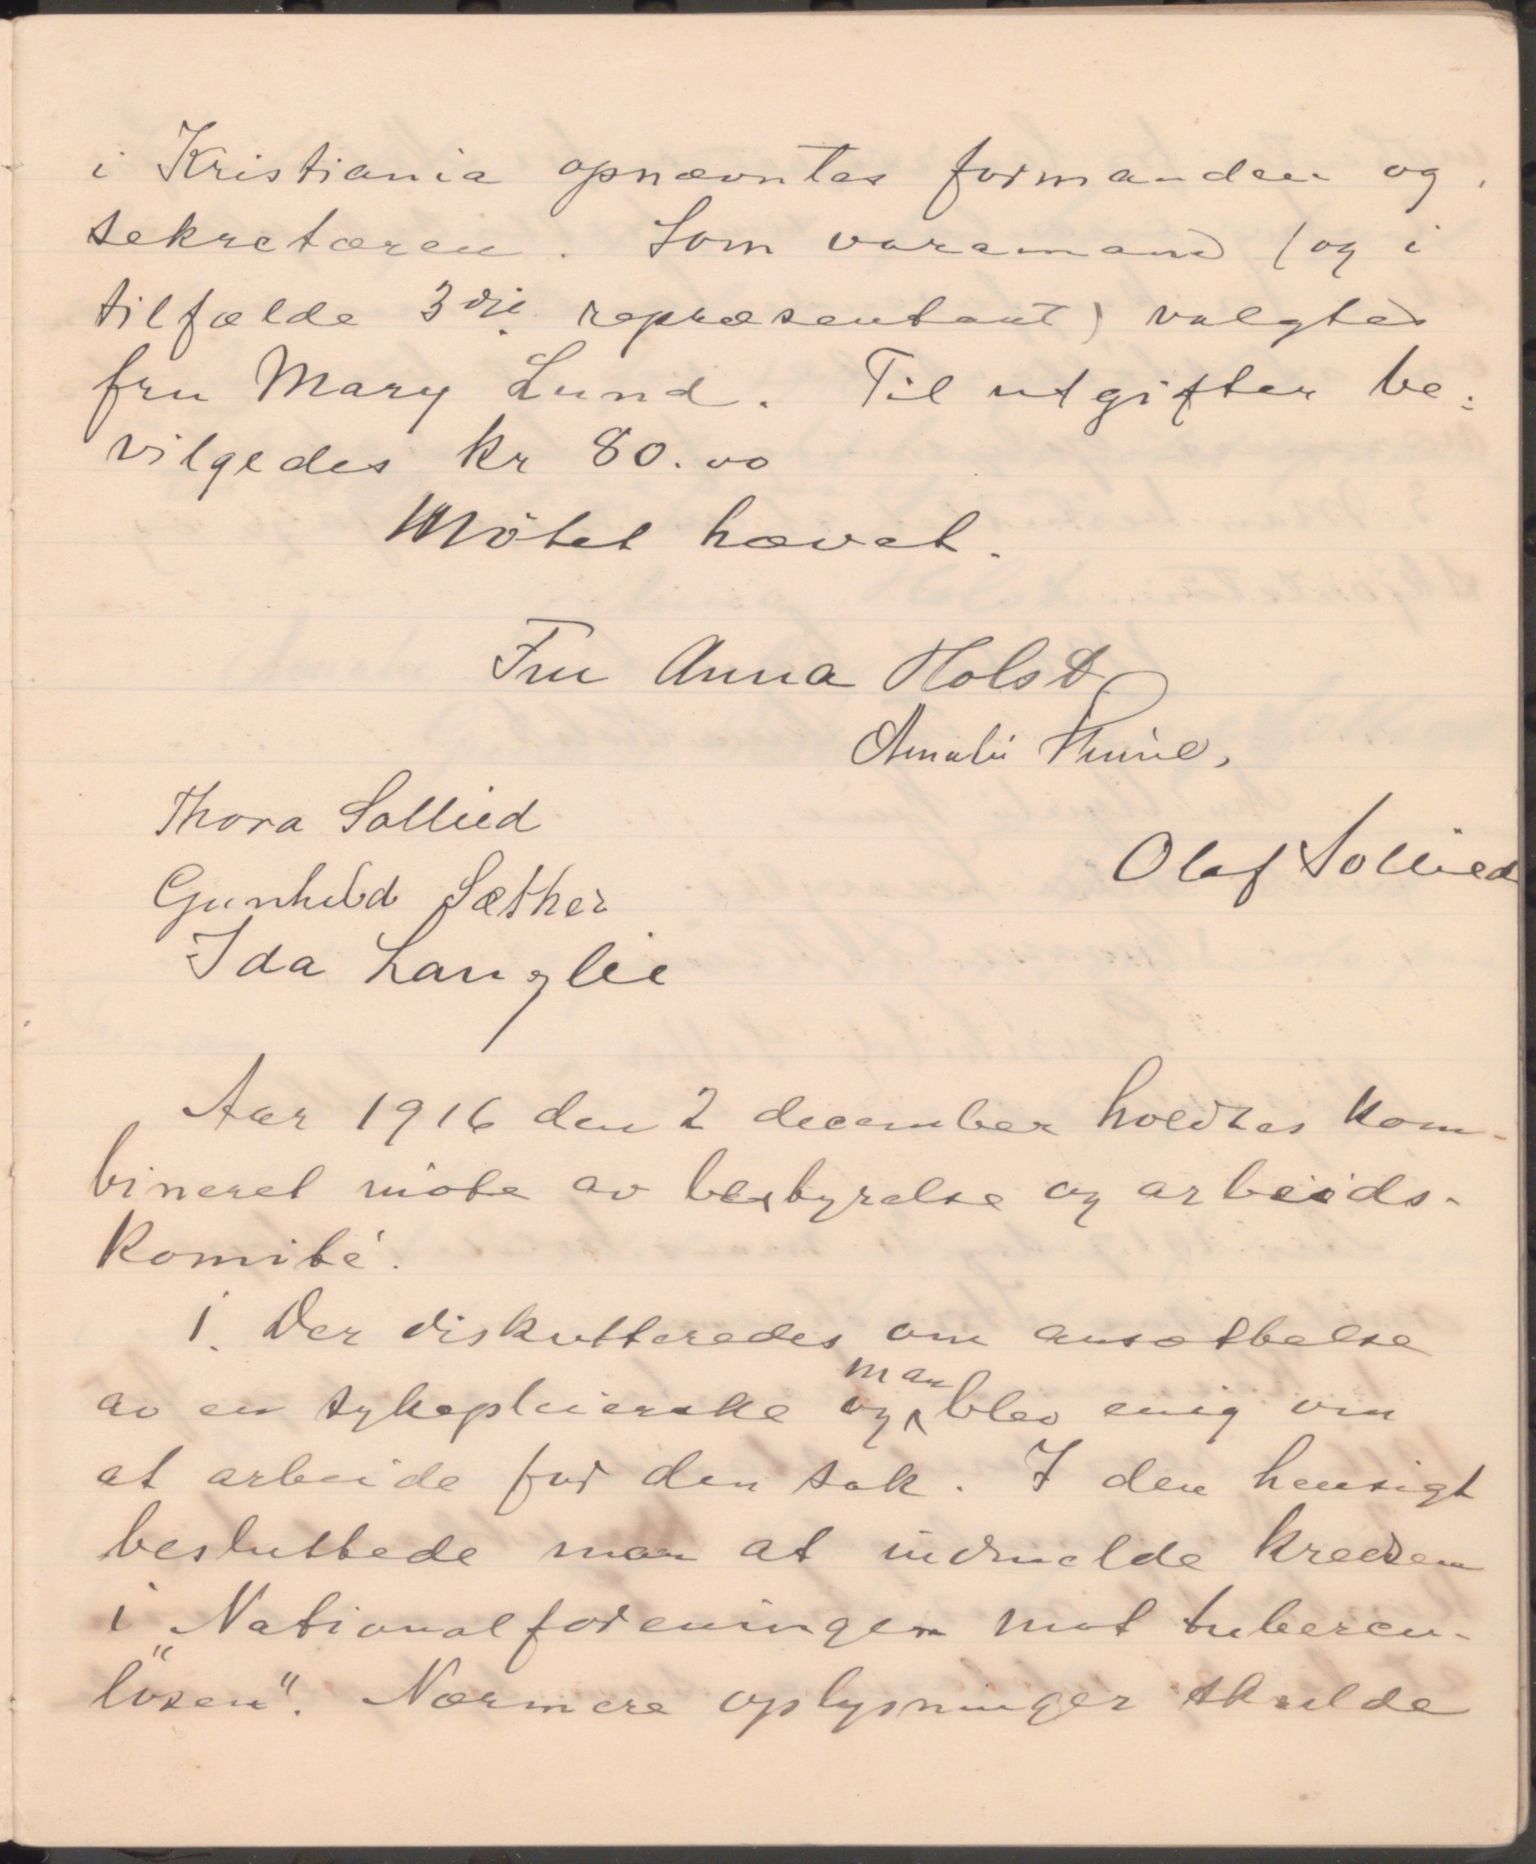 i Kristiania opnævntes formanden og
sekretæren. Som varamand (og i
tilfælde 3die repræsentant) valgtes
fru Mary Lund. Til utgifter be-
vilgedes kr 80.00
Mötet hævet.
Fru Anna Holst
Amalie
Thora Sollied
Olaf Sollied
Gunhild Sæther
Ida Langlie
Aar 1916 den 2 december holdtes kom-
bineret möte av bestyrelse og arbeids-
komité.
1. Der diskutteredes om ansættelse
av en sykepleierske og man blev enig om
at arbeide for den sak. I den hensigt
besluttede man at indmelde kredsen
i "Nationalforeningen mot tubercu-
lösen". Nærmere oplysninger skulde